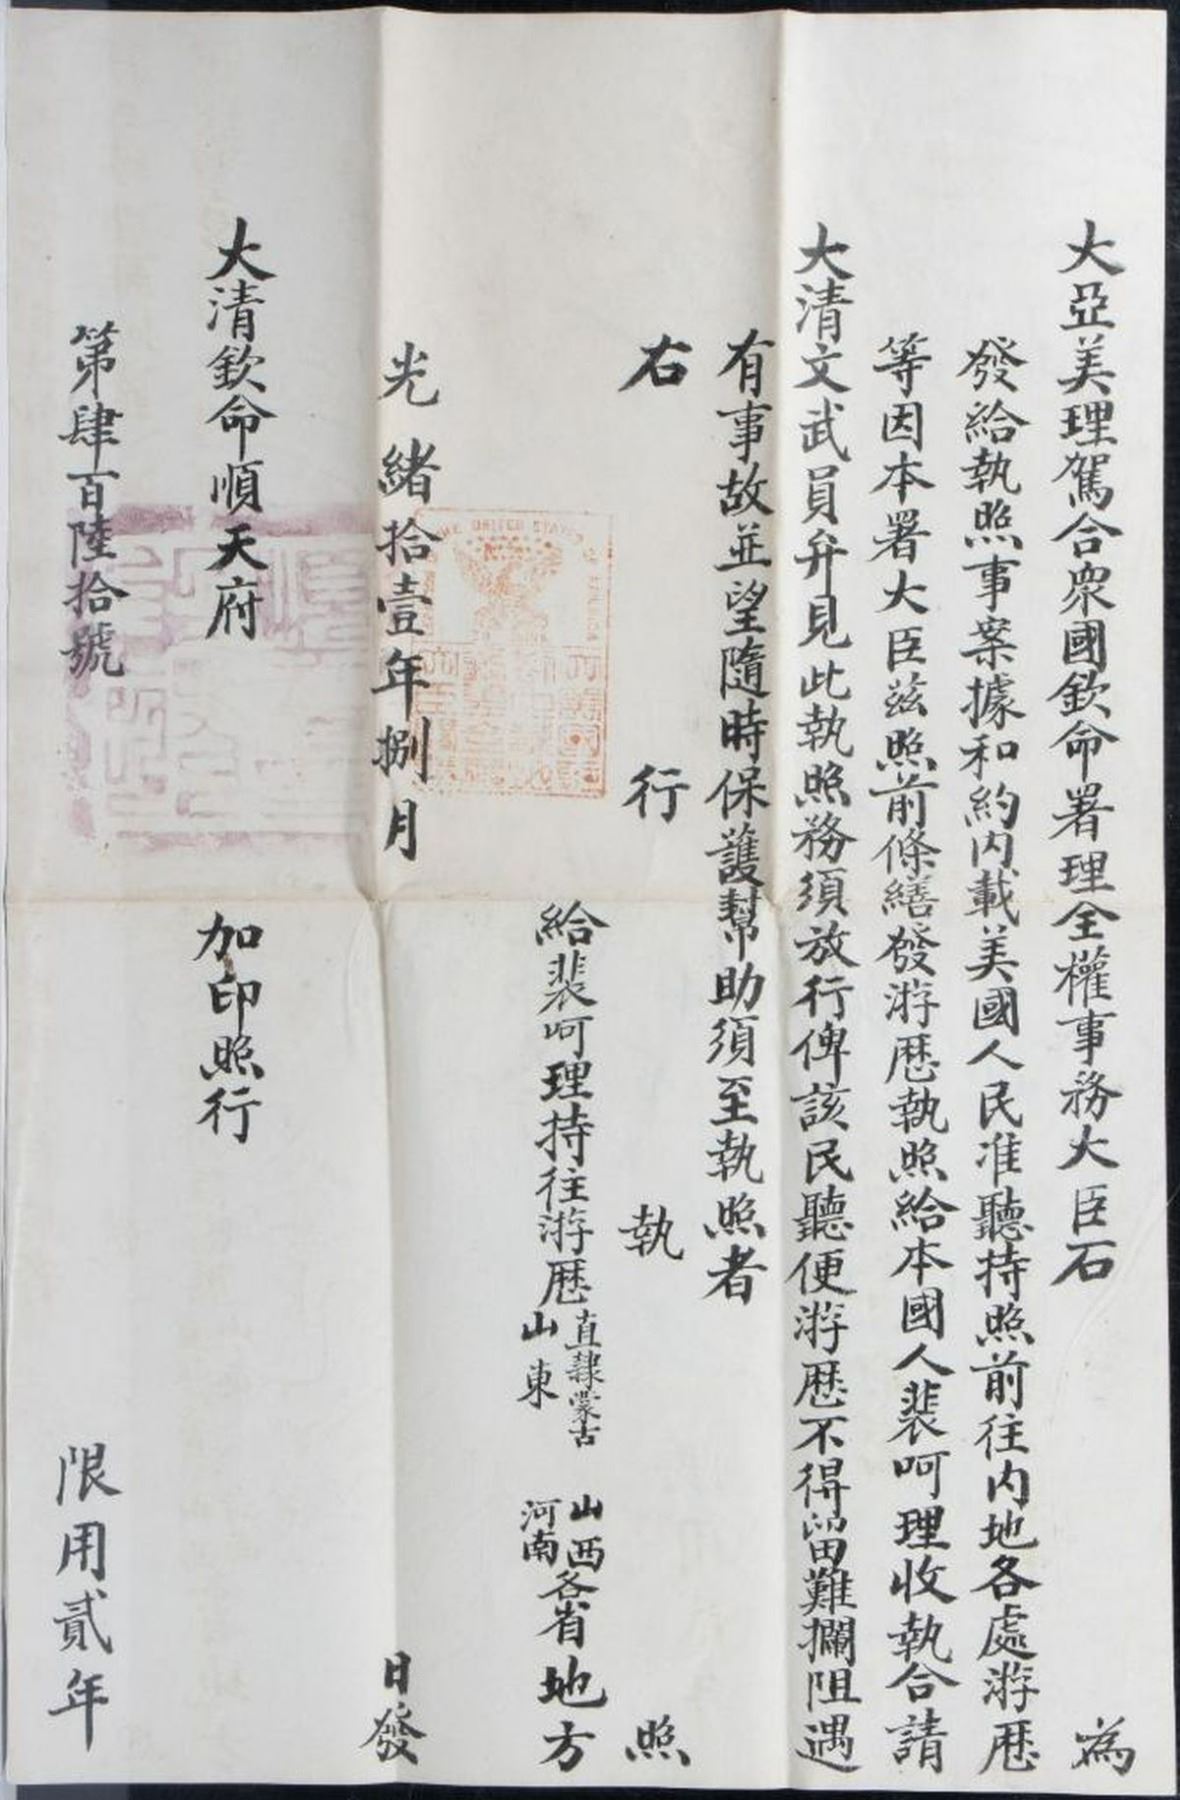 大亞美理駕合衆國欽命署理全權事務大臣石　為
發給執照事案據和約内載美國人民准聽持照前往内地各處游歷
等因本署大臣茲照前條繕發游歷執照給本國人裴呵理收執合請
大清文武員弁見此執照務須放行俾該民聽便游歷不得留難攔阻遇
有事故並望隨時保護幫助須至執照者
右行執照
給裴呵理持往游歷直隸蒙古山東山西河南各省地方
光緒拾壹年捌月　日發
大清欽命順天府　加印照行
第肆百陸拾號　限用貳年
THE UNITED STATES